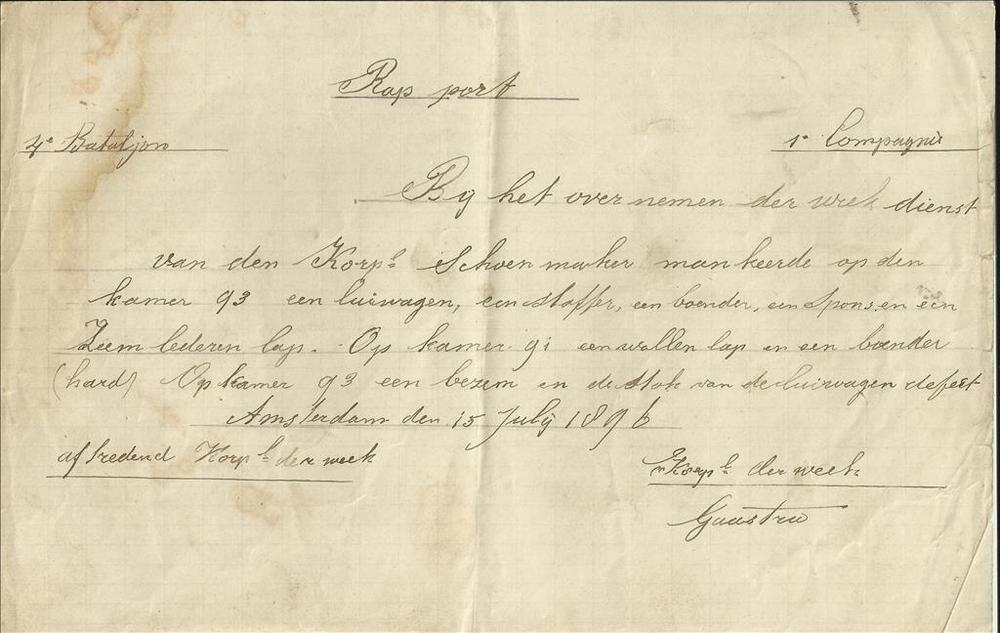 Rap port
4e Bataljon 1e Compagnie
Bij het over nemen der week dienst
van den Korpl Schoenmaker mankeerde op den
kamer 93 een luiwagen, een stoffer, een boender, een spons, en een
Zeem lederen lap. Op kamer 91 een wollen lap en een boender
(hard) Op kamer 93 een bezem en de stok van de luiwagen defect
Amsterdam den 15 July 1896
aftredend Korpl der week
Korpl der week
Gaastra